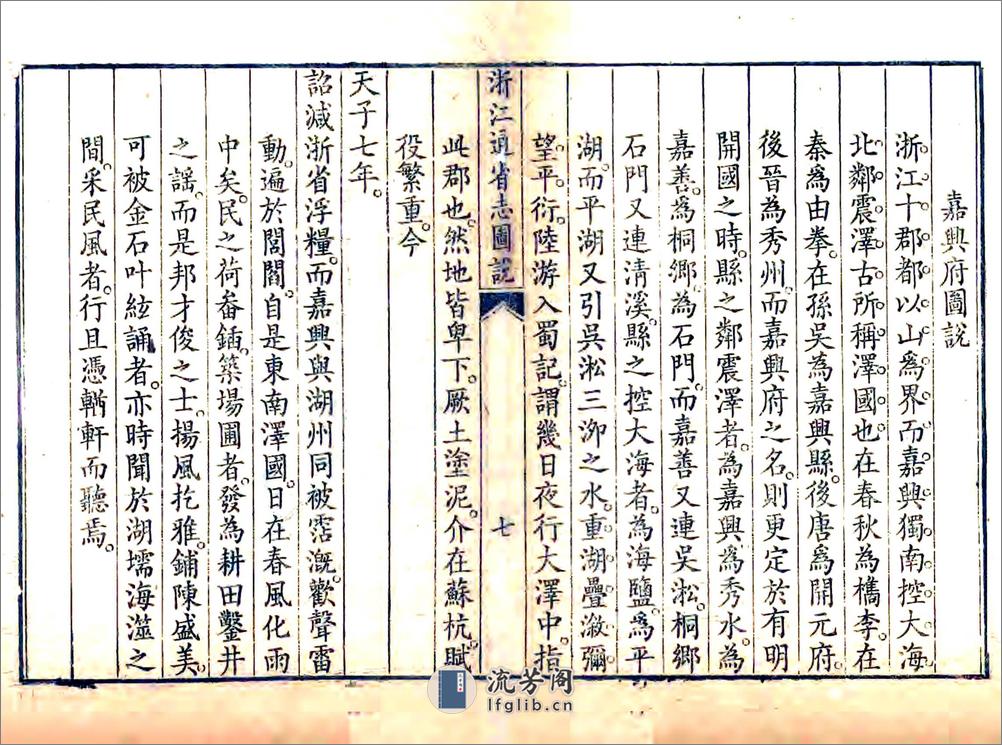 嘉興府圖說
浙江十郡都以山爲界。而嘉興獨南控大海
北鄰震澤。古所稱澤國也。在春秋為檇李。在
秦為由拳。在孫吳為嘉興縣。後唐爲開元府。
後晉為秀州。而嘉興府之名。則更定於有明
開國之時。縣之鄰震澤者。為嘉興爲秀水。為
嘉善。爲桐鄉。為石門。而嘉善又連吳淞。桐鄉
石門又連清溪。縣之控大海者。為海鹽。爲平
湖。而平湖又引吳淞三泖之水。重湖疊漵。彌
望平衍。陸游入蜀記。謂幾日夜行大澤中。指
此郡也。然地皆卑下。厥土塗泥。介在蘇杭。賦
役繁重。今
浙江通省志圖說
七
天子七年。
詔減浙省浮糧。而嘉興與湖州同被霑漑。歡聲雷
動。遍於閭閻。自是東南澤國。日在春風化雨
中矣。民之荷畚鍤。築場圃者。發為耕田鑿井
之謠。而是邦才俊之士。揚風扢雅。鋪陳盛美。
可被金石叶絃誦者。亦時聞於湖壖海澨之
間。采民風者。行且憑輶軒而聽焉。
流芳阁
lfglib.cn